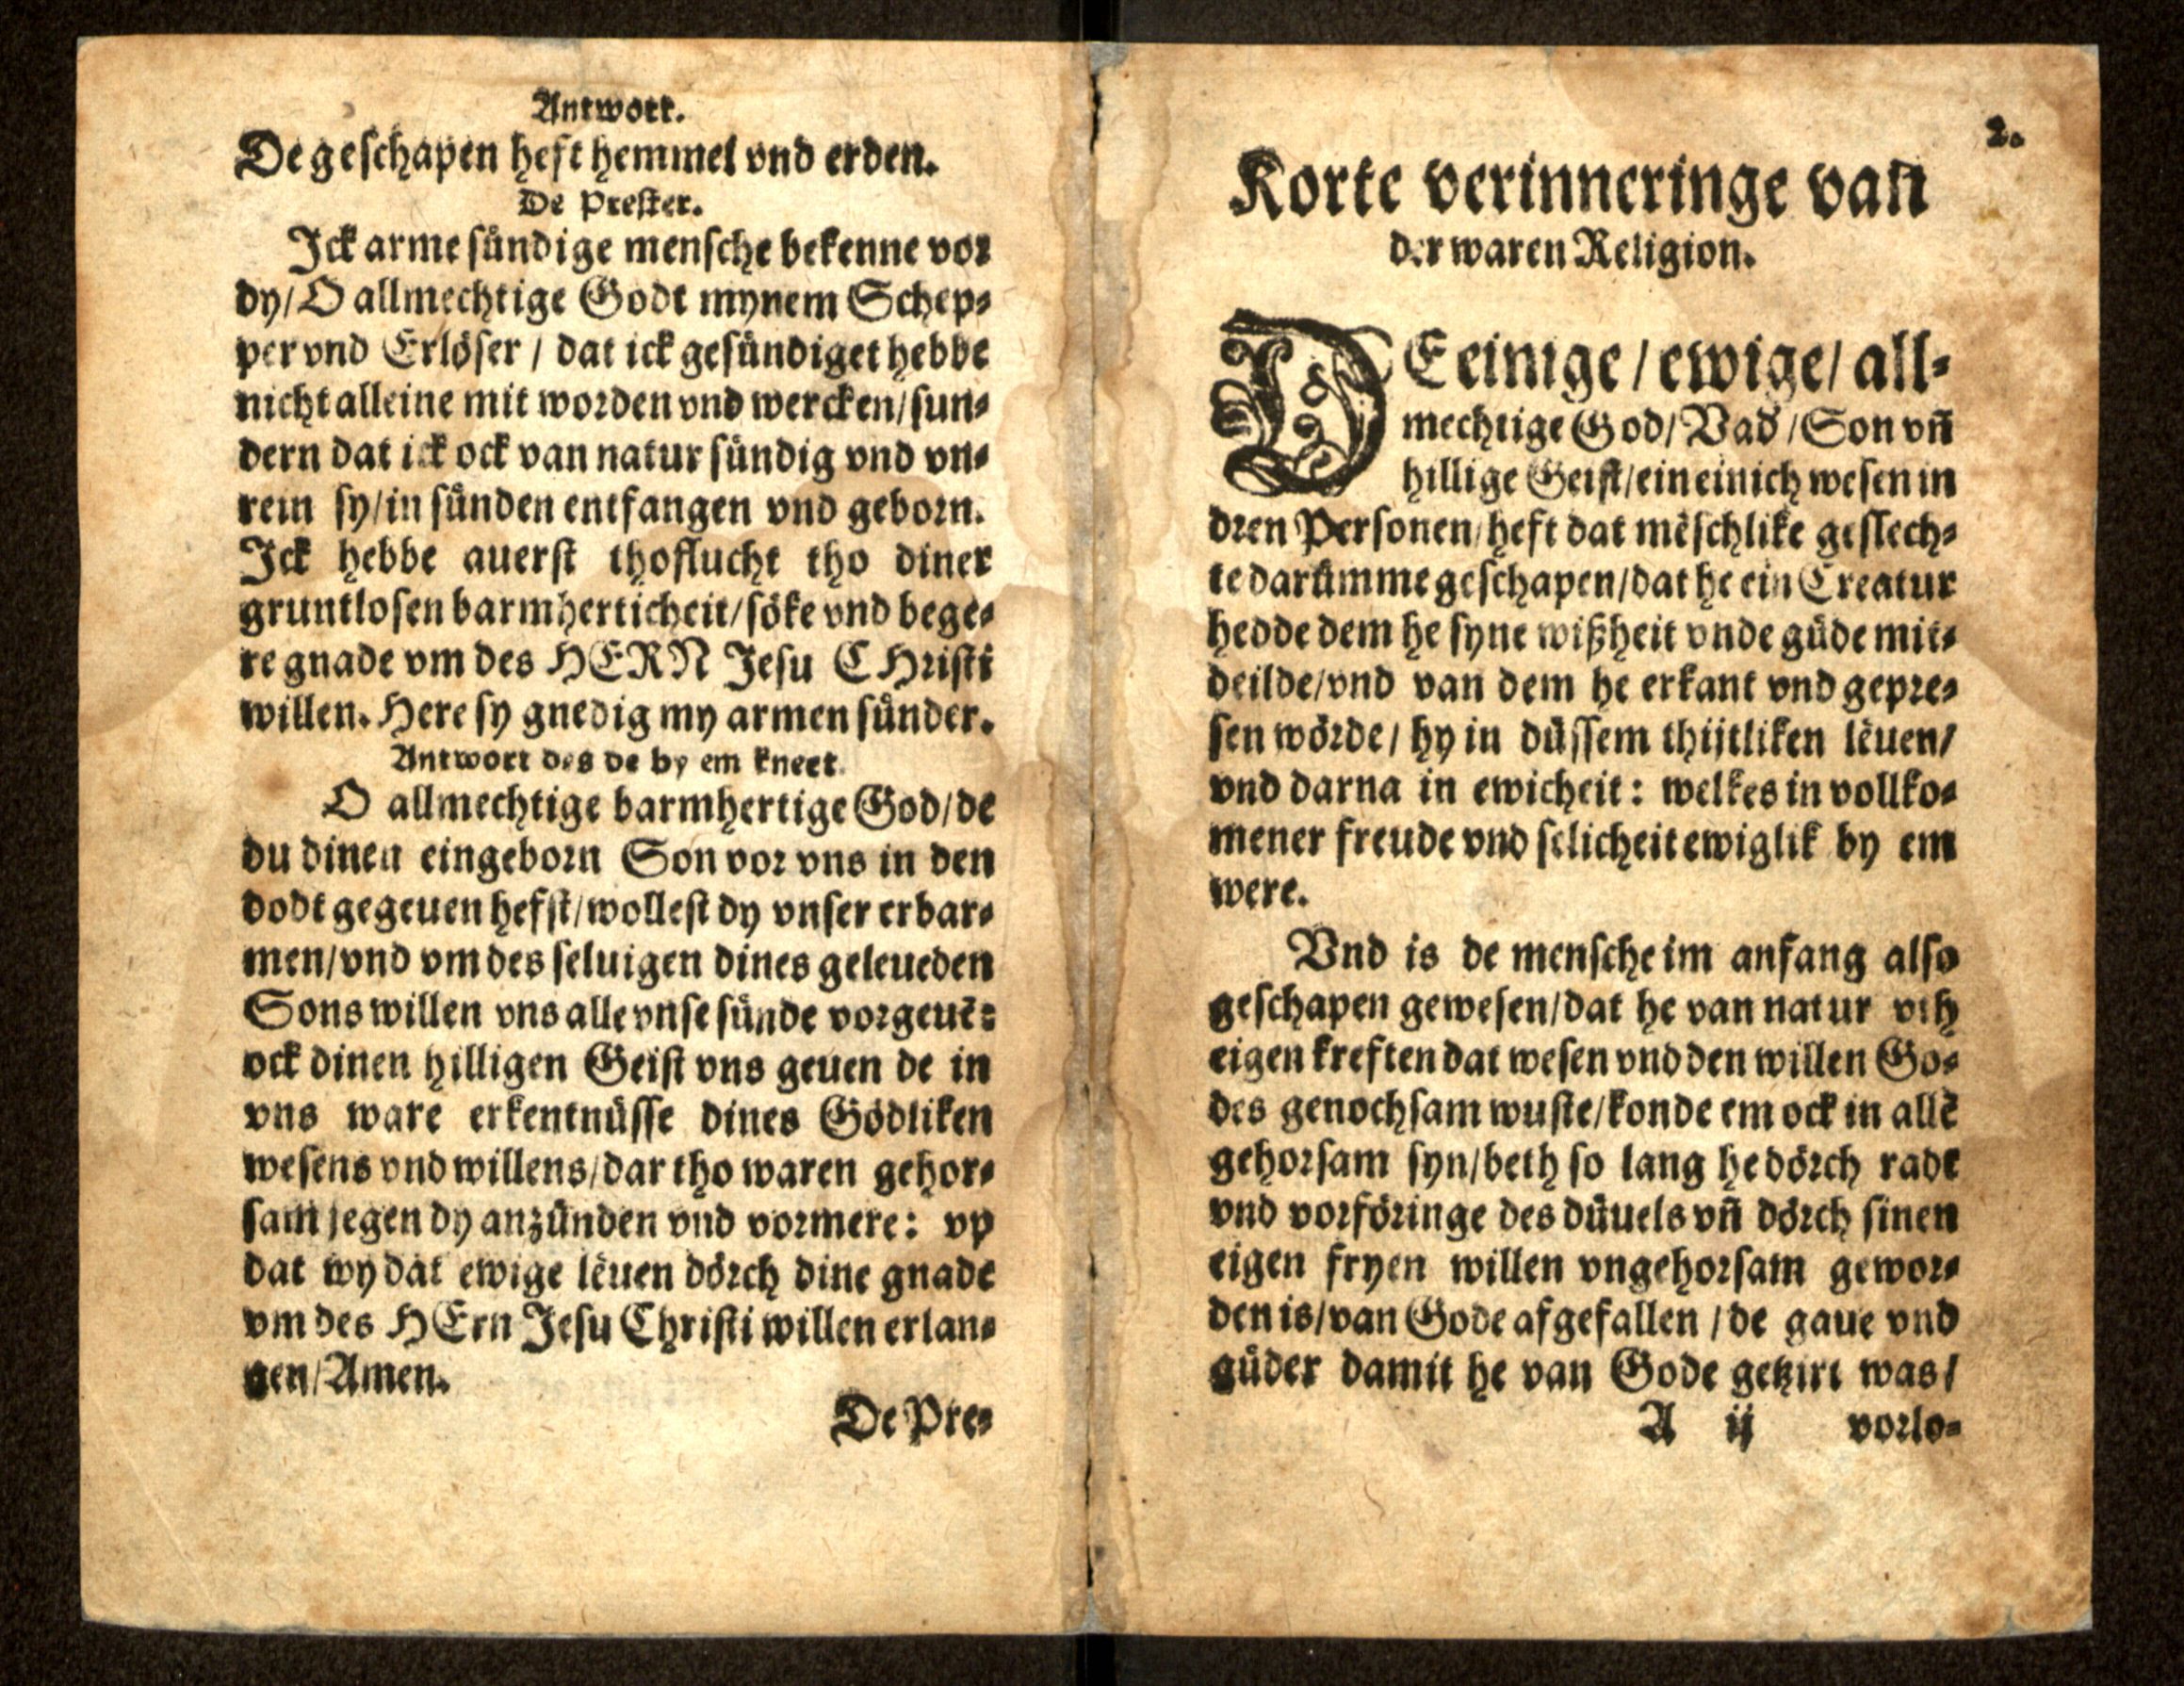 Antwort.
De geschapen heft hemmel vnd erden.
De Prester.
Ick arme sündige mensche bekenne vor
dy/O allmechtige Godt mynem Schep-
per vnd Erlöser / dat ick gesündiget hebbe
nicht alleine mit worden vnd wercken/sun-
dern dat ick ock van natur sündig vnd vn-
rein sy/in sünden entfangen vnd geborn.
Ick hebbe auerst thoflucht tho diner
gruntlosen barmherticheit/söke vnd bege-
re gnade vm des HERN Jesu CHristi
willen. Here sy gnedig my armen sünder.
Antwort des de by em kneet.
O allmechtige barmhertige God/de
du dinen eingeborn Son vor vns in den
dodt gegeuen hefst/wollest dy vnser erbar-
men/vnd vm des seluigen dines geleueden
Sons willen vns alle vnse sünde vorgeuē:
ock dinen hilligen Geist vns geuen de in
vns ware erkentnüsse dines Gödliken
wesens vnd willens/dar tho waren gehor-
sam jegen dy anzünden vnd vormere: vp
dat wy dat ewige lèuen dörch dine gnade
vm des HErn Jesu Christi willen erlan-
gen/Amen.
De Pre-
2.
Korte verinneringe van
der waren Religion.
DE einige/ewige/all-
mechtige God/Vad'/Son vñ
hillige Geist/ein einich wesen in
dren Personen/heft dat mēschlike geslech-
te darümme geschapen/dat he ein Creatur
hedde dem he syne wißheit vnde güde mit-
deilde/vnd van dem he erkant vnd gepre-
sen wörde/hy in düssem thijtliken lèuen/
vnd darna in ewicheit: welkes in vollko-
mener freude vnd selicheit ewiglik by em
were.
Vnd is de mensche im anfang also
geschapen gewesen/dat he van natur vth
eigen kreften dat wesen vnd den willen Go-
des genochsam wuste/konde em ock in allē
gehorsam syn/beth so lang he dörch radt
vnd vorföringe des düuels vñ dörch sinen
eigen fryen willen vngehorsam gewor-
den is/van Gode afgefallen /de gaue vnd
güder damit he van Gode getzirt was/
A ij vorlo-